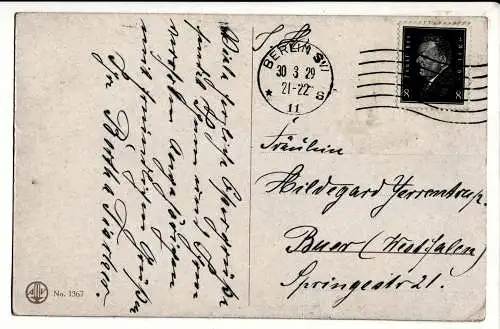 Viele herzliche Ostergrüße
sendet
werten Angehörigen
mit freundlichen Grüßen
Ihr
No. 1367
BERLIN SW
30 3 29
21-22
11
S
8
8
Fräulein
Hildegard Herrentrup.
Buer (Westfalen)
Springestr 21.